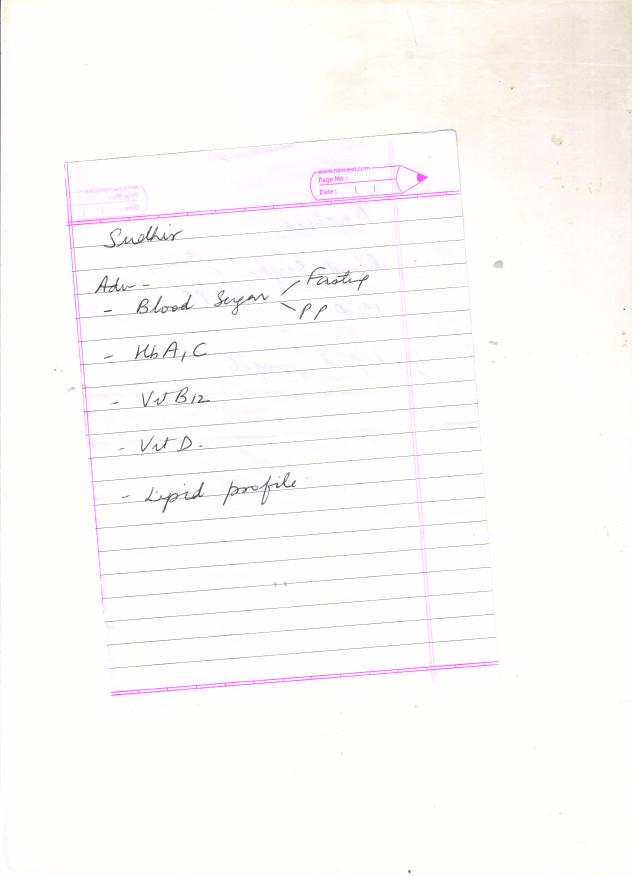 www.navneet.com
Page No.:
Date: | |
Sudhir
Adv -
- Blood Sugar Fasting
PP
- HbA1C
- Vit B12
- Vit D.
- Lipid profile